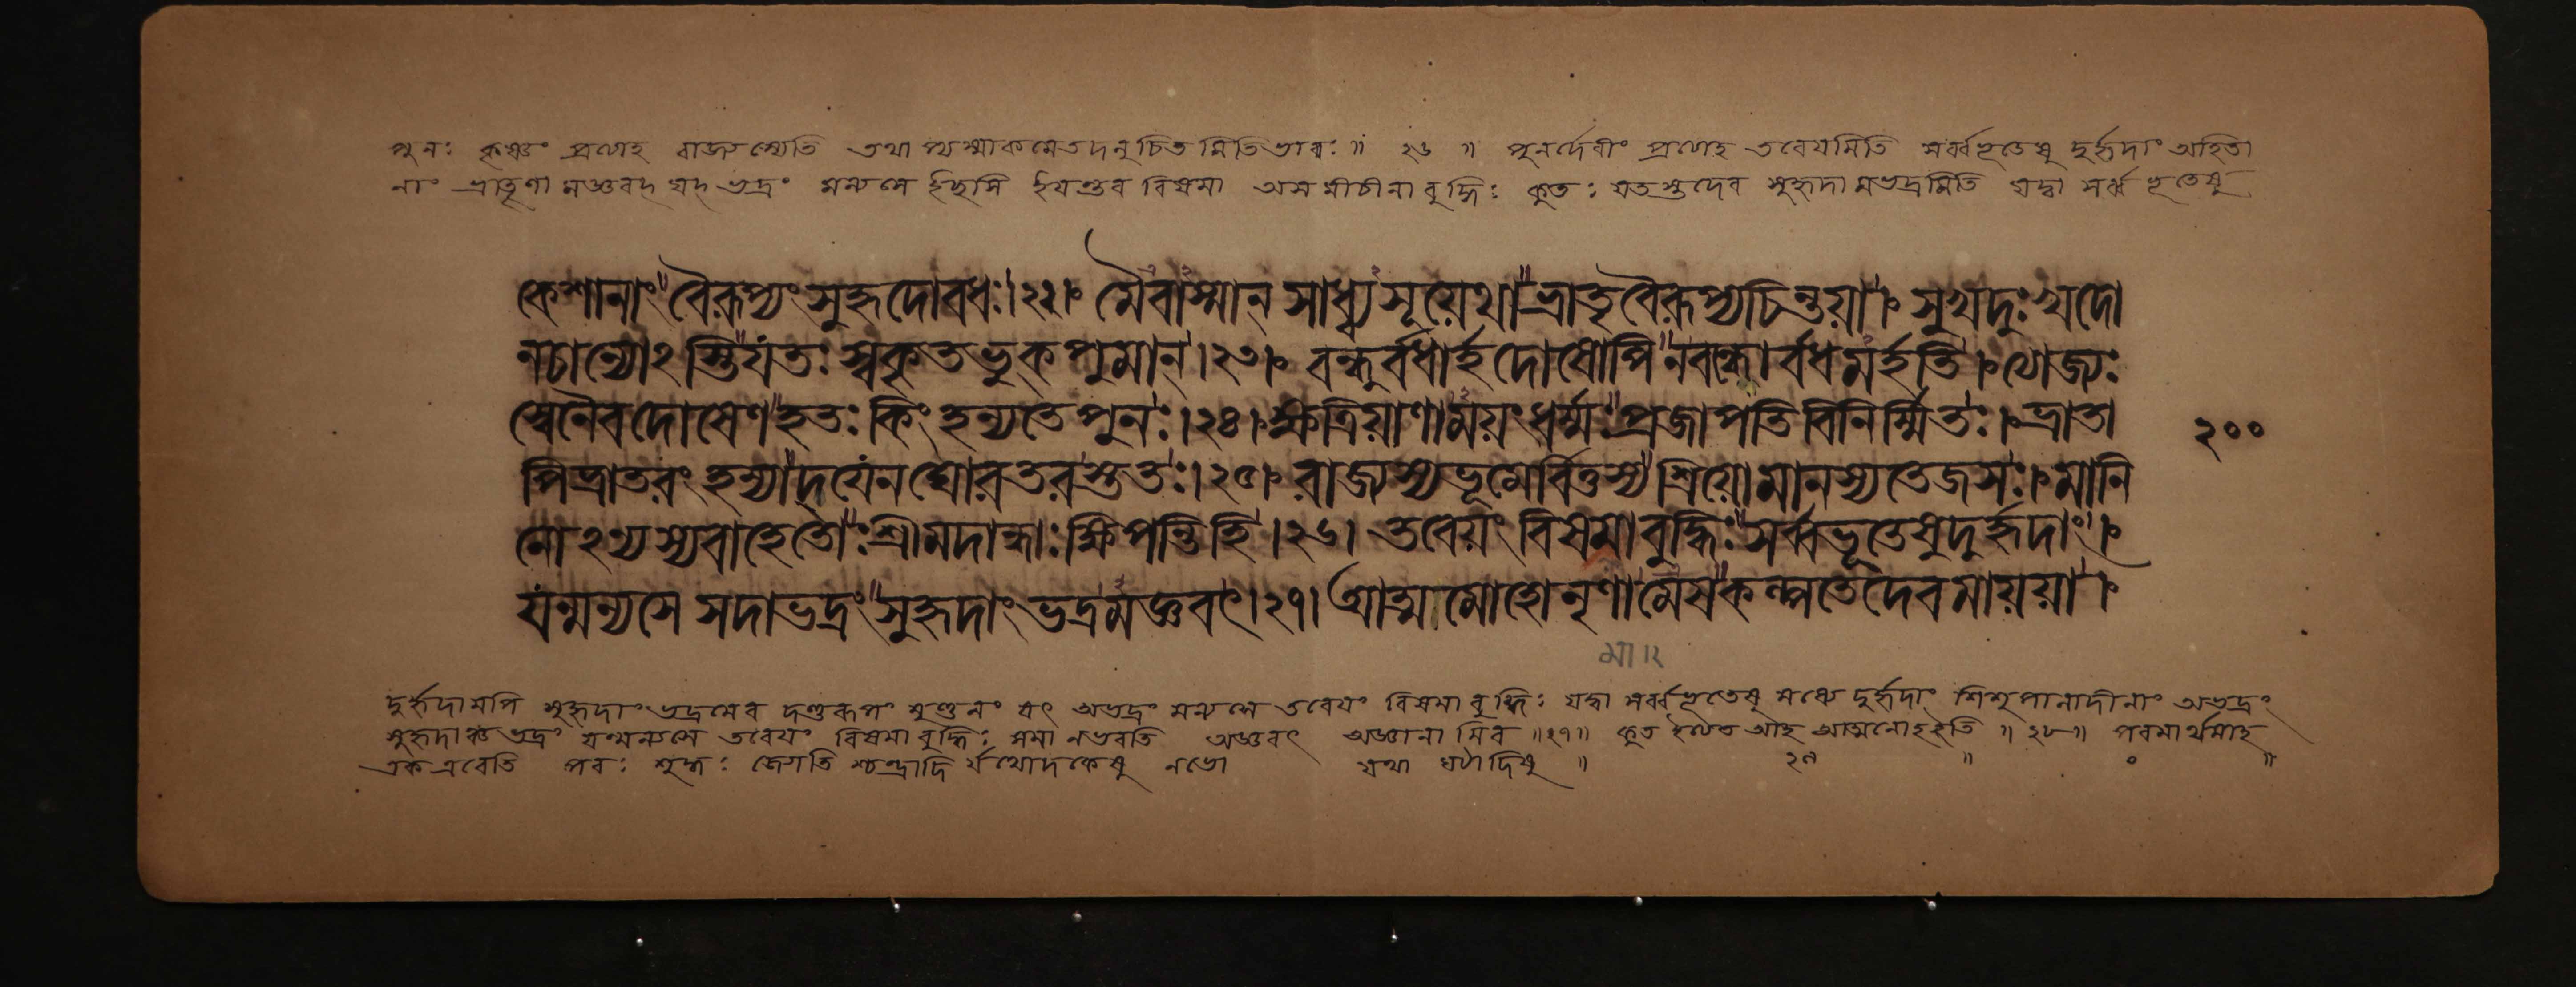 পুনঃ কৃষ্ণং প্রত্যাহ রাজ্যস্যেতি তথাপ্যস্মাকমেতদনুচিতমিতিভাবঃ ॥ ২৬ ॥ পুনর্দেবীং প্রত্যাহ তবেয়মিতি সর্ব্বভূতেষু দুর্হৃদাং অহিতা
নাং ভ্রাতৃণামজ্ঞবদ্ যদ্ ভদ্রং মন্যসে ইছসি ইয়ন্তব বিষমা অসমীচীনাবুদ্ধিঃ কুতঃ যতস্তদেব সুহৃদামভদ্রমিতি যদ্বা সর্ব্বভূতেষু
কেশানাং বৈরূপ্যং সুহৃদোবধঃ।২২। মৈবাস্মান্ সাধ্ব্যসূয়েথা ভ্রাতৃবৈরূপ্যচিন্তয়া। সুখদুঃখদো
নচান্যোঽস্তিযতঃ স্বকৃতভুক পুমান্।২৩। বন্ধুর্বধার্হদোষোপি নবন্ধোর্বধমর্হতি। ত্যোজ্যঃ
স্বেনৈবদোষেণ হতঃ কিং হন্যতে পুনঃ।২৪। ক্ষত্রিয়াণাময়ং ধর্ম্মঃ প্রজাপতিবিনির্ম্মিতঃ। ভ্রাতা
পিভ্রাতরং হন্যাদ্ যেনঘোরতরস্ততঃ।২৫। রাজ্যস্যভূমের্বিত্তস্য শ্রিয়োমানস্যতেজসঃ। মানি
নোঽন্যস্যবাহেতোঃ শ্রীমদান্ধাঃ ক্ষিপন্তিহি।২৬। তবেয়ং বিষমাবুদ্ধিঃ সর্ব্বভূতেষুদুর্হৃদাং।
যন্মন্যসে সদাভদ্রং সুহৃদাং ভদ্রমজ্ঞবৎ।২৭। আত্মমোহোনৃণামেষকল্পতেদেবমায়য়া।
২০০
মা॥২
দুর্হৃদামপি সুহৃদাং ভদ্রমেব দণ্ডরূপং মুণ্ডনং যৎ অভদ্রং মন্যসে তবেয়ং বিষমাবুদ্ধিঃ যদ্বা সর্ব্বভূতেষু মধ্যে দুর্হৃদাং শিশুপালাদীনাং অভদ্রং
সুহৃদাঞ্চ ভদ্রং যন্মন্যসে তবেয়ং বিষমাবুদ্ধিঃ সমা নভবতি অজ্ঞবৎ অজ্ঞানামিব ॥২৭॥ কুত ইত্যত আহ আত্মনোহইতি ॥ ২৮ ॥ পরমার্থমাহ
একএবেতি পরঃ শুদ্ধঃ জ্যোতি শ্চন্দ্রাদি র্যথোদকেষু নভো যথা ঘটাদিষু ॥ ২৯ ॥ ০ ॥